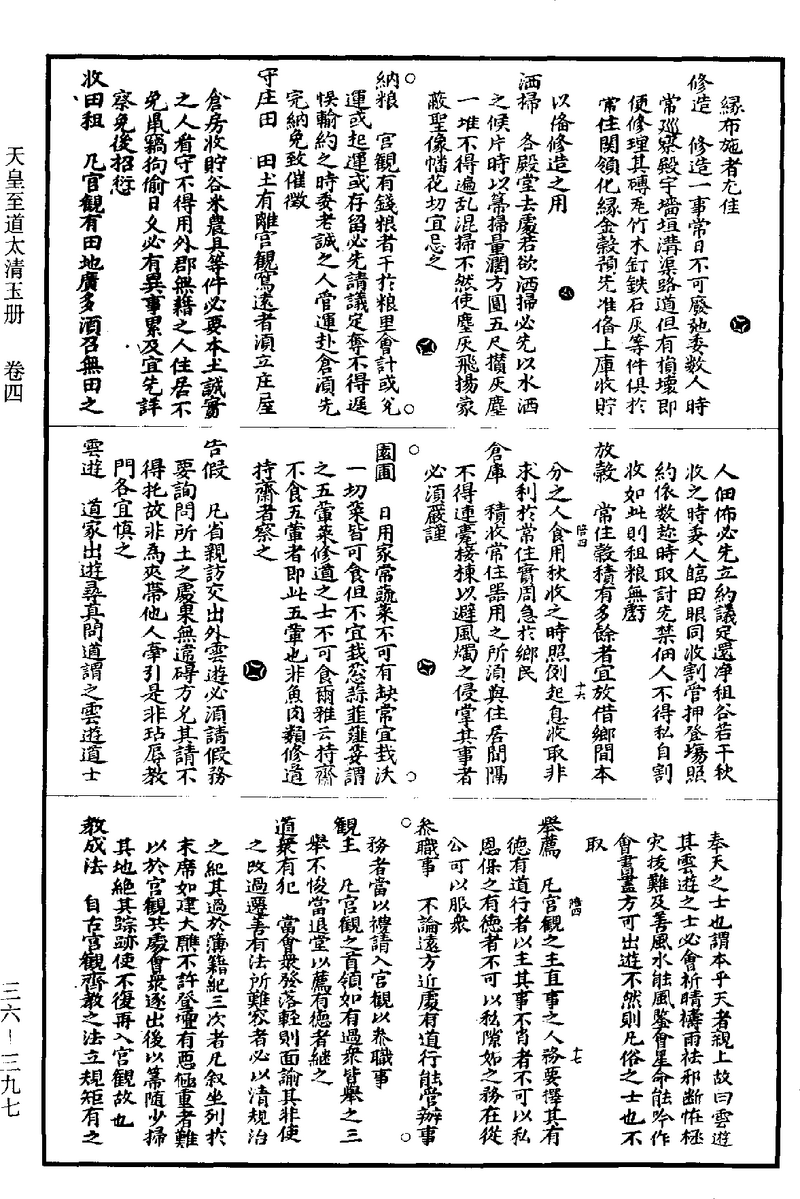 緣布施者尤佳
修造　修造一事常日不可廢弛委数人時
常廵察殿宇墻垣溝渠路道但有損壞即
便修理其磚瓦竹木釘鉄石灰等件俱於
常住関領化緣金穀預先准俻上庫收貯
以俻修造之用
洒掃　各殿堂去處若欲洒掃必先以水洒
之候片時以箒掃量濶方圓五尺攅灰塵
一堆不得遍乱混掃不然使塵灰飛揚蒙
蔽聖像幡花切宜忌之
納粮　官観有錢粮者干於粮里會計或兌
運或起運或存留必先請議定奪不得遲
悮輸約之時委老誠之人管運赴倉湏先
完納免致催徵
守庄田　田土有離宫観窵遠者湏立庄屋
倉房收貯谷米農具等件必要本土誠實
之人看守不得用外郡無籍之人住居不
免鼠竊狗偷日久必有異事累及宜先詳
察免後招愆
收田租　凡宫観有田地廣多酒召無田之
人佃佈必先立約議定還凈租谷若干秋
收之時委人臨田眼同收割管押登塲照
約依数趂時取討先禁佃人不得私自割
收如此則租粮無虧
放穀　常住穀積有多餘者宜放借鄉間本
分之人食用秋收之時照例起息收取非
求利於常住實周急於鄉民
倉庫　積收常住器用之所湏與住居間隔
不得連甍接棟以避風燭之侵掌其事者
必須嚴謹
園圃　日用家常蔬菜不可有缺常宜栽沃
一切菜皆可食但不宜栽葱蒜韭薤荽謂
之五葷菜修道之士不可食爾雅云持齋
不食五葷者即此五葷也非魚肉類修道
持齋者察之
告假　凡省親訪交出外雲遊必須請假務
要詢問所土之處果無違碍方允其請不
得托故非為夾帶他人牽引是非玷辱教
門各宜慎之
雲遊　道家出遊尋真問道謂之雲遊道士
奉天之士也謂本乎天者親上故曰雲遊
其雲遊之士必會祈晴禱雨祛邪斷怪拯
灾拔難及善風水能風鑒會星命能吟作
會書畫方可出遊不然則凡俗之士也不
取
舉薦　凡宫観之主直事之人務要擇其有
德有道行者以主其事不肖者不可以私
恩保之有德者不可以私隙妬之務在從
公可以服衆
叅職事　不論遠方近處有道行能管辦事
務者當以禮請入宫観以叅職事
観主　凡宫観之首領如有過衆皆舉之三
舉不悛當退堂以薦有德者継之
道衆有犯　當會衆發落輕則面諭其非使
之改過遷善有法所難容者必以清規治
之紀其過於薄籍紀三次者凡叙坐列於
末席如建大醮不許登壇有惡極重者難
以於宫観共處會衆逐出後以箒随少掃
其地絶其踪跡使不復再入宫観故也
教成法　自古宫観齊教之法立規矩有之
隋四
十六
隋四
十七
天皇至道太清玉册　卷四
三六—三九七